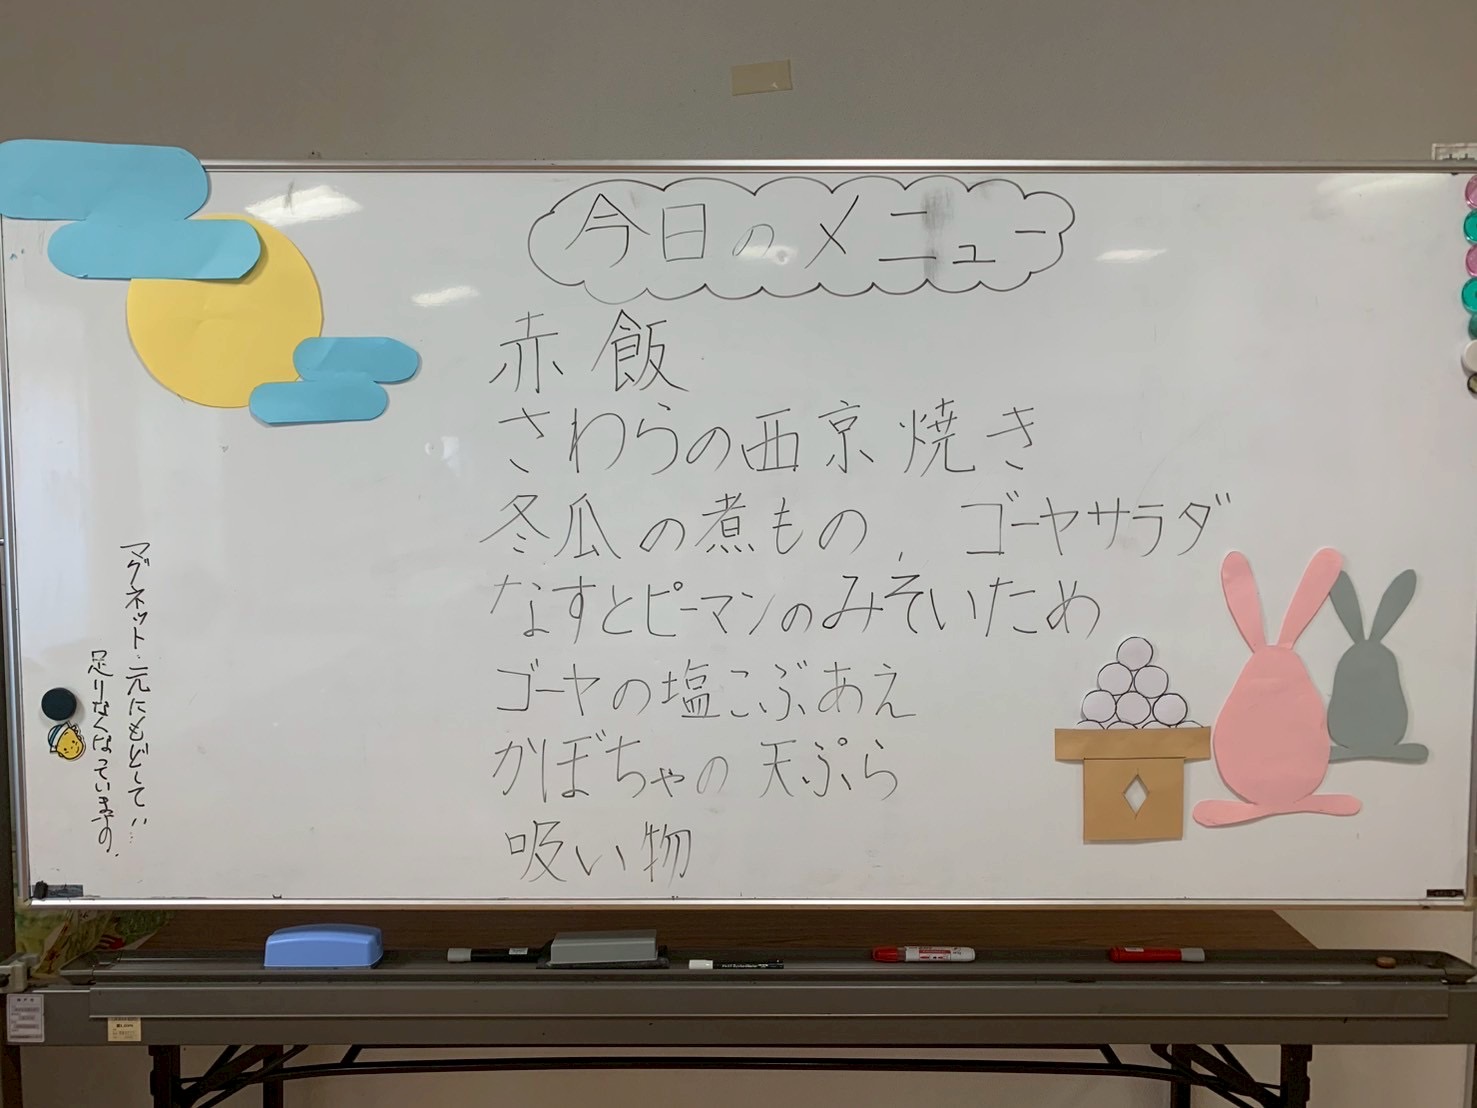 今日のメニュー
赤飯
さわらの西京焼き
冬瓜の煮もの、ゴーヤサラダ
なすとピーマンのみそいため
ゴーヤの塩こぶあえ
かぼちゃの天ぷら
吸い物
マグネット・元にもどして!!…
足りなくなっています。